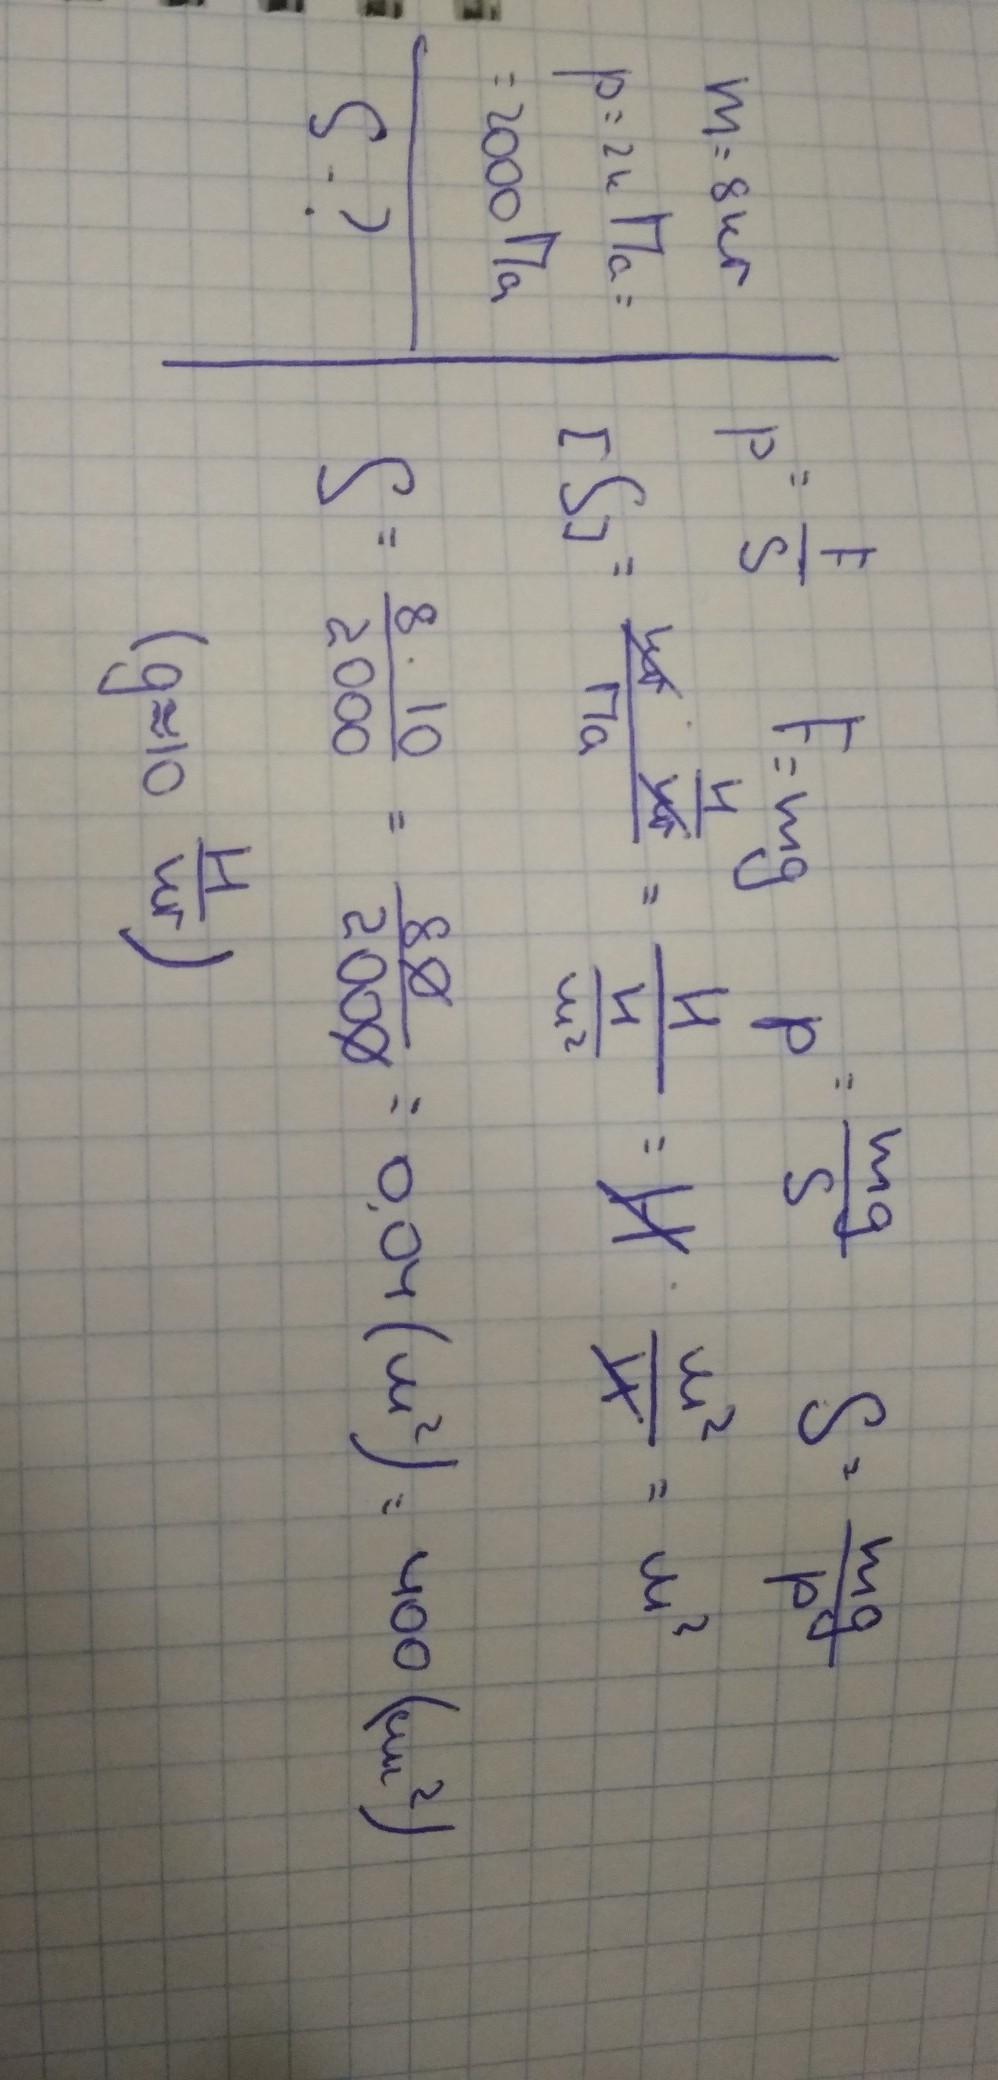 m = 8 кг
p = 2 кПа =
= 2000 Па
S - ?
p = F/S F = mg p = mg/S S = mg/p
[S] = (кг · Н/кг)/Па = Н/(Н/м²) = Н · м²/Н = м²
S = (8 · 10)/2000 = 80/2000 = 0,04 (м²) = 400 (см²)
(g ≈ 10 Н/кг)